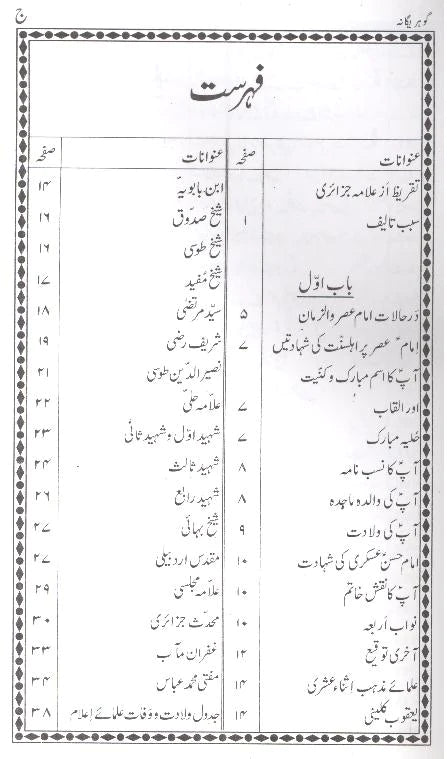 گوہر یگانہ
ج
فہرست
عنوانات صفحہ
تقریظ از علامہ جزائری
سبب تالیف ۱
باب اوّل
در حالات امام عصر والزمانؑ ۵
امامؑ عصر پر اہلسنّت کی شہادتیں ۷
آپؑ کا اسم مبارک و کنیت
اور القاب ۷
حلیہ مبارک ۷
آپؑ کا نسب نامہ ۸
آپؑ کی والدہ ماجدہ ۸
آپؑ کی ولادت ۹
امام حسنؑ عسکری کی شہادت ۱۰
آپؑ کا نقش خاتم ۱۰
نواب اربعہ ۱۰
آخری توقیع ۱۲
علمائے مذہب اثناء عشری ۱۴
یعقوب کلینیؒ ۱۴
عنوانات صفحہ
ابن بابویہؒ ۱۴
شیخ صدوقؒ ۱۶
شیخ طوسی ۱۶
شیخ مُفید ۱۷
سیّد مرتضیٰ ۱۸
شریف رضی ۱۹
نصیر الدّین طوسی ۲۱
علامہ حلّی ۲۲
شہید اوّل و شہید ثانیؒ ۲۳
شہید ثالث ۲۴
شہید رابع ۲۶
شیخ بہائی ۲۷
مقدس اردبیلی ۲۷
علامہ مجلسی ۲۹
محدّث جزائری ۳۰
غفران مآب ۳۳
مفتی محمد عباس ۳۴
جدول ولادت و وفات علمائے اعلام ۳۸